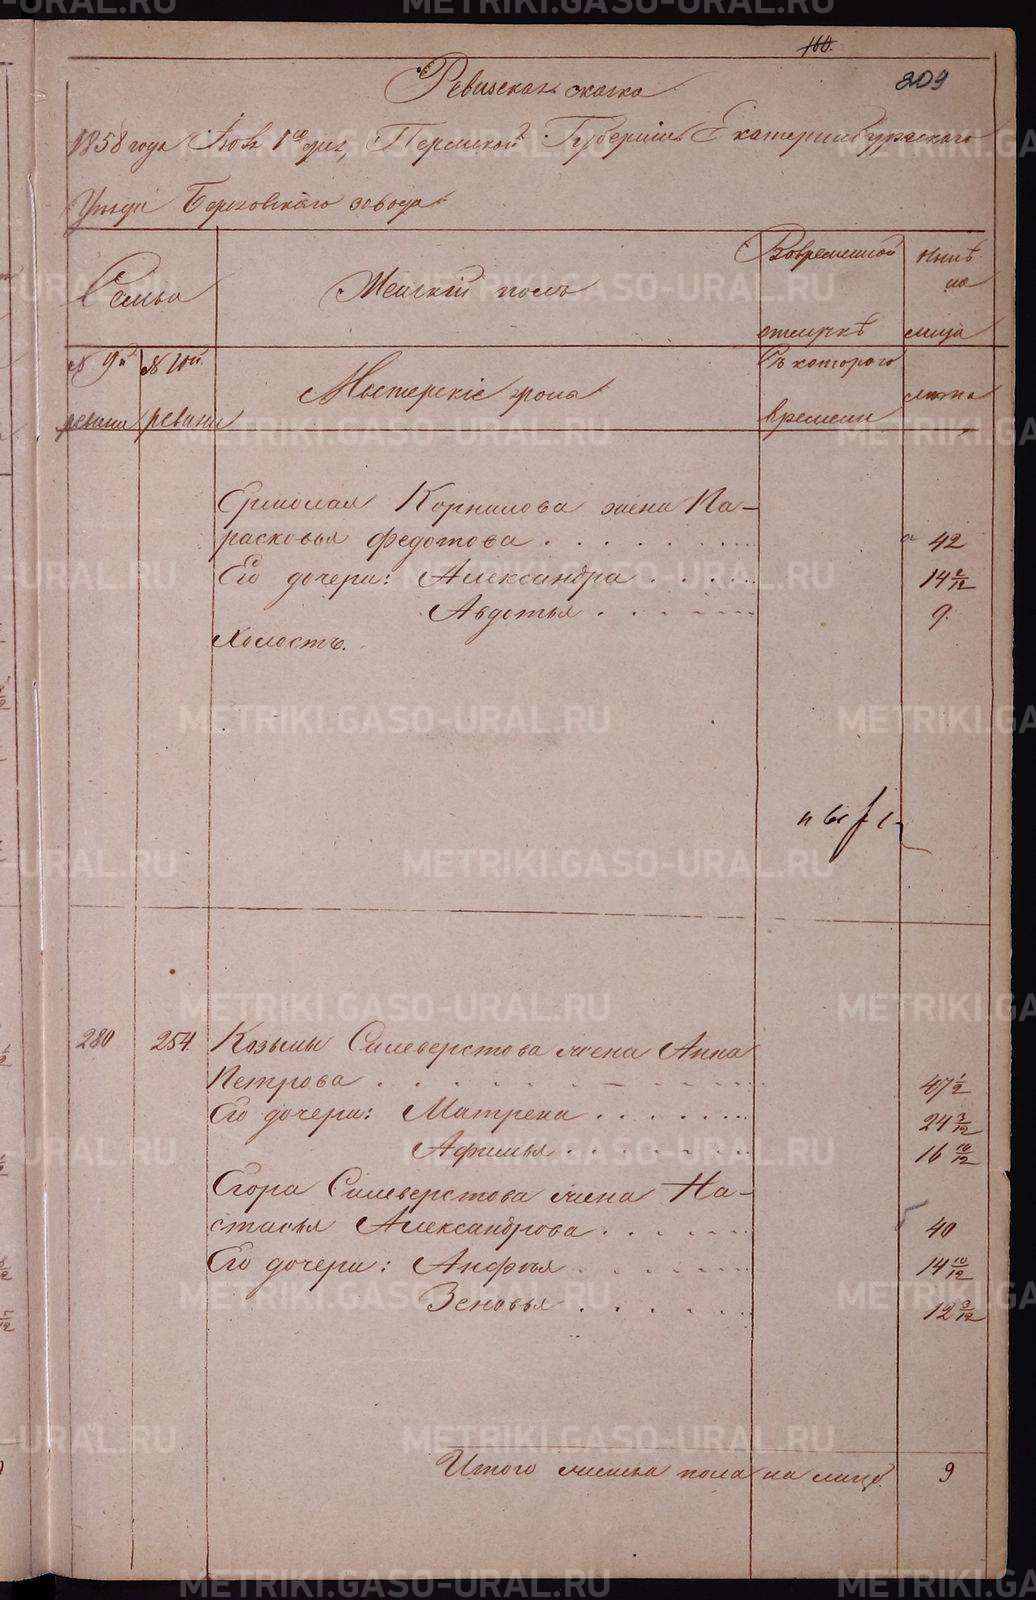 160.
209
Ревизская сказка
1858 года 1го дня, Пермской Губернии Екатеринбургского
Уезда Березовского завода
Семьи
Женский полъ
Вовременной
отлучкѣ
Нынѣ
на
лицо
№ 9й
ревизи
№ 10й
ревизи
Мастерскіе
Съ котораго
времени
лѣта
Ермолая Корнилова жена Па-
расковья Федотова . . . . . . . . . 42
Его дочери: Александра . . . . . . 14 2/12
Авдотья . . . . . . 9.
Холостъ.
280 254. Козьмы Силеверстова жена Анна
Петрова . . . . . . . . . . . 47 1/2
Его дочери: Матрена . . . . . . . 24 3/12
Афимья . . . . . . . . 16 10/12
Егора Силеверстова жена На-
стасья Александрова . . . . . . 40
Его дочери: Анфья . . . . . . . 14 10/12
Зеновья . . . . . . 12 9/12
Итого женска пола на лицо. 9
METRIKI.GASO-URAL.RU